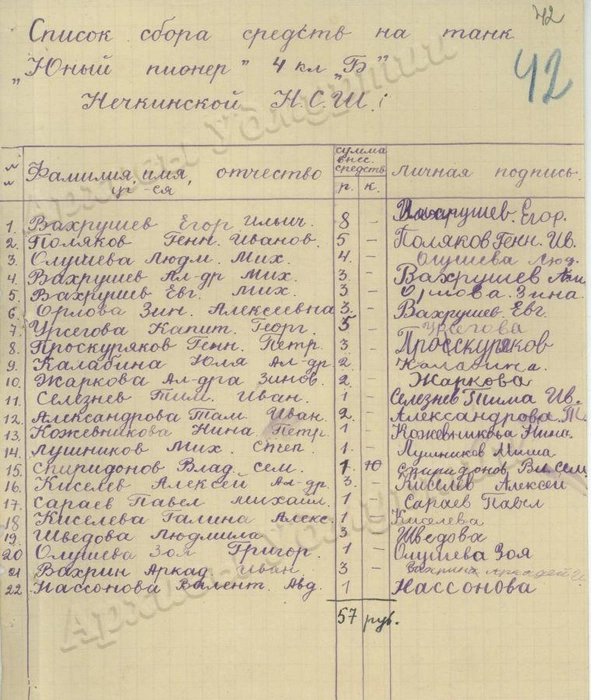 42
Список сбора средств на танк
„Юный пионер" 4 кл „Б"
Нечкинской Н.С.Ш.
42
№ № Фамилия, имя, отчество уч-ся сумма внес. средств р. к. Личная подпись.
1. Вахрушев Егор Ильич. 8 - Вахрушев. Егор.
2. Поляков Генн. Иванов. 5 - Поляков Генн. Ив.
3. Олушева Людм. Мих. 4. - Олушева Люд.
4. Вахрушев Ал-др Мих. 3 - Вахрушев
5. Вахрушев Евг. Мих. 3 - Орлова. Зина
6. Орлова Зин. Алексеевна 3. - Вахрушев Евг
7. Урсегова Капит. Георг. 5 - Урсегова
8. Проскуряков Генн. Петр. 3 - Просскуряков
9. Калабина Юля Ал-др. 2. - Калабина.
10. Жаркова Ал-дра Зинов. 2. - Жаркова
11. Селезнев Тим. Иван. 1 - Селезнев Тима Ив.
12. Александрова Там. Иван. 2 - Александрова. Т
13. Кожевникова Нина Петр. 1 - Кожевникова Нина.
14. Лушников Мих. Степ. 1. - Лушников Миша
15. Спиридонов Влад. Сем. 1 10 Спиридонов. Вл. Сем
16. Киселев Алексей Ал-др. 3. - Киселев Алексей
17. Сараев Павел Михайл. 1 - Сараев Павел
18 Киселева Галина Алекс. 1 - Киселева
19. Шведова Людмила 3 - Шведова
20 Олушева Зоя Григор. 1 - Олушева Зоя
21 Вахрин Аркад. Иван. 3 - Вахрин Аркадей И
22. Нассонова Валент. Авд. 1 Нассонова
57 руб.
Архивы Удмуртии
Архивы Удмуртии